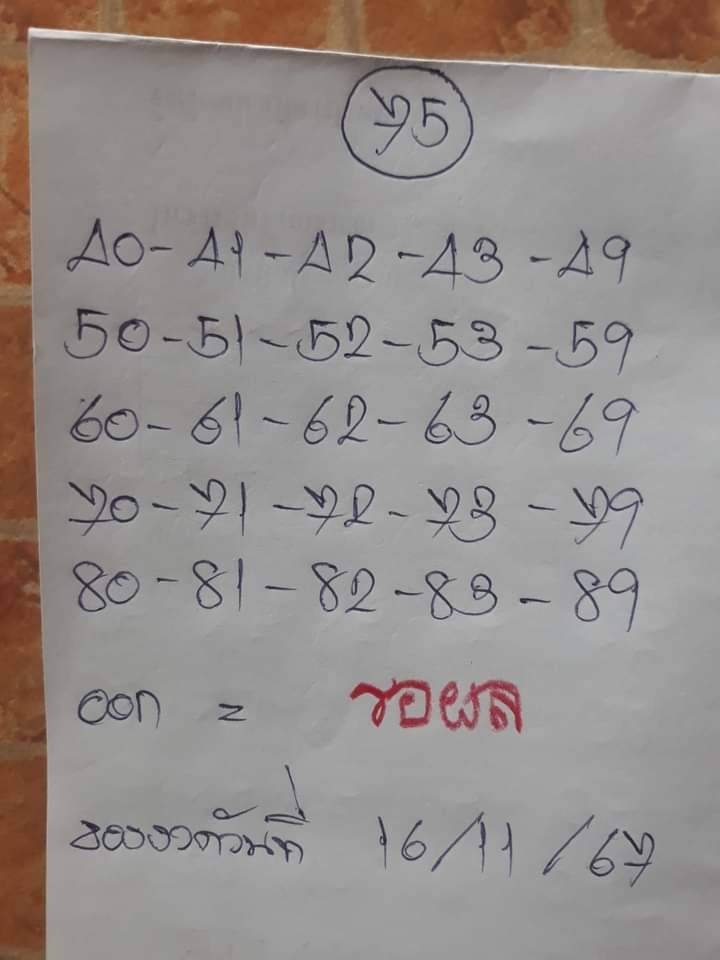 75
40-41-42-43-49
50-51-52-53-59
60-61-62-63-69
70-71-72-73-79
80-81-82-83-89
ออก = รอผล
ของงวดวันที่ 16/11/67